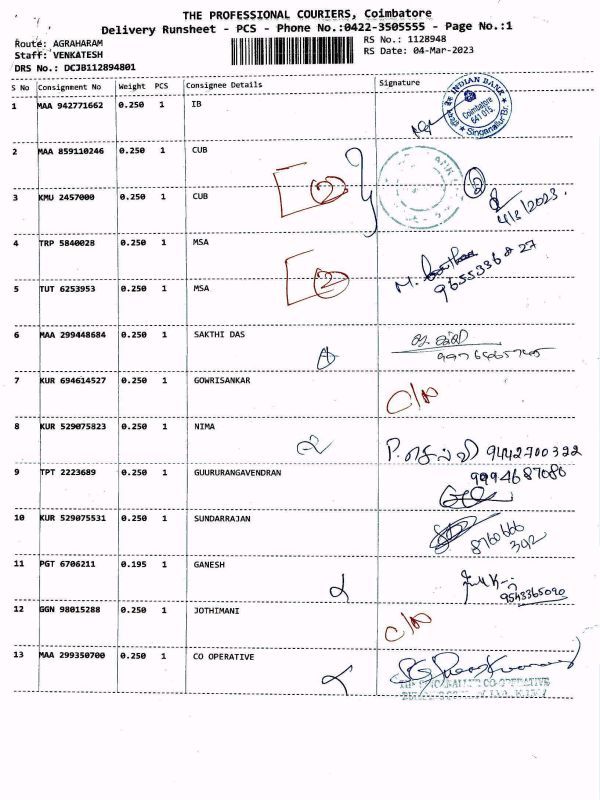 THE PROFESSIONAL COURIERS, Coimbatore
Delivery Runsheet - PCS - Phone No.:0422-3505555 - Page No.:1
Route: AGRAHARAM
RS No.: 1128948
Staff: VENKATESH
RS Date: 04-Mar-2023
DRS No.: DCJB112894801
S No Consignment No Weight PCS Consignee Details Signature
1 MAA 942771662 0.250 1 IB
INDIAN BANK
Coimbatore
641 015.
Singanallur Br.
2 MAA 859110246 0.250 1 CUB
2
3 KMU 2457000 0.250 1 CUB
4/3/2023.
4 TRP 5840028 0.250 1 MSA
2
M.
9655336827
5 TUT 6253953 0.250 1 MSA
6 MAA 299448684 0.250 1 SAKTHI DAS
7 KUR 694614527 0.250 1 GOWRISANKAR
8 KUR 529075823 0.250 1 NIMA
P. செல்வி 9442700322
9 TPT 2223689 0.250 1 GUURURANGAVENDRAN
9994687086
10 KUR 529075531 0.250 1 SUNDARRAJAN
8760666
392
11 PGT 6706211 0.195 1 GANESH
9543365090
12 GGN 98015288 0.250 1 JOTHIMANI
13 MAA 299350700 0.250 1 CO OPERATIVE
CO-OPERATIVE